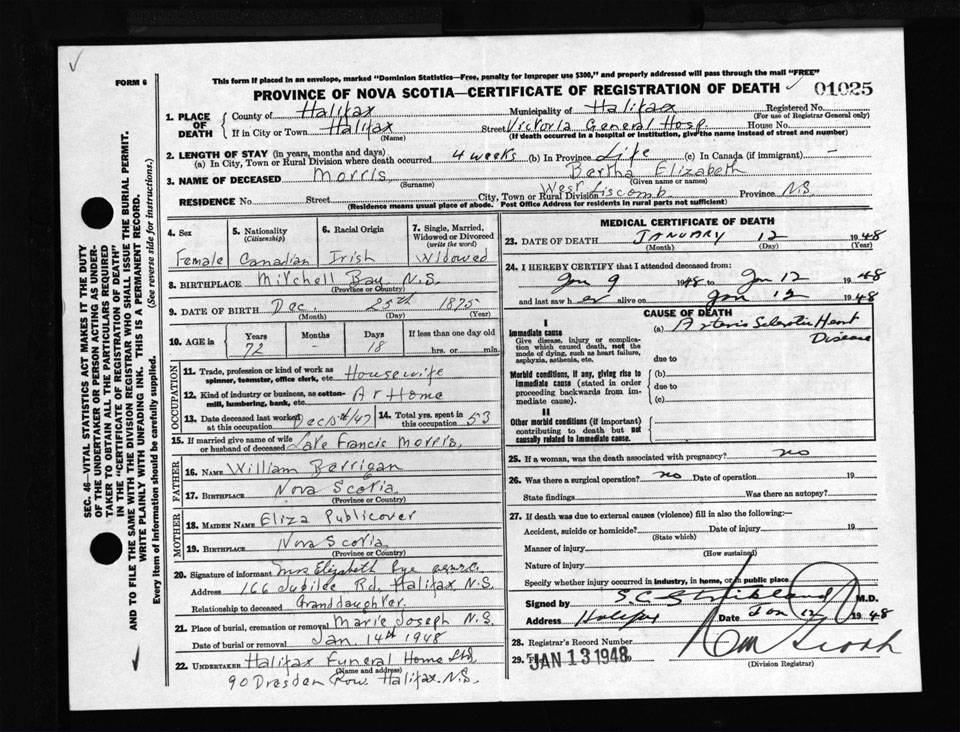 FORM 6
This form if placed in an envelope, marked "Dominion Statistics—Free, penalty for improper use $300," and properly addressed will pass through the mail "FREE"
PROVINCE OF NOVA SCOTIA—CERTIFICATE OF REGISTRATION OF DEATH 01025
1. PLACE OF DEATH
County of Halifax Municipality of Halifax Registered No.
(For use of Registrar General only)
If in City or Town Halifax Street Victoria General Hosp. House No.
(Name) (If death occurred in a hospital or institution, give the name instead of street and number)
2. LENGTH OF STAY (in years, months and days)
(a) In City, Town or Rural Division where death occurred 4 weeks (b) In Province Life (c) In Canada (if immigrant) —
3. NAME OF DECEASED Morris Bertha Elizabeth
(Surname) (Given name or names)
RESIDENCE No. Street City, Town or Rural Division West Liscomb Province N.S.
(Residence means usual place of abode. Post Office Address for residents in rural parts not sufficient)
4. Sex
Female
5. Nationality (Citizenship)
Canadian
6. Racial Origin
Irish
7. Single, Married, Widowed or Divorced (write the word)
Widowed
8. BIRTHPLACE Mitchell Bay N.S.
(Province or Country)
9. DATE OF BIRTH Dec. 25th 1875
(Month) (Day) (Year)
10. AGE in Years Months Days If less than one day old
72 - 18 hrs. or min.
OCCUPATION
11. Trade, profession or kind of work as spinner, teamster, office clerk, etc. Housewife
12. Kind of industry or business, as cotton-mill, lumbering, bank, etc. At Home
13. Date deceased last worked at this occupation Dec/ /47
14. Total yrs. spent in this occupation 53
15. If married give name of wife or husband of deceased Late Francis Morris.
FATHER
16. NAME William Berrigan
17. BIRTHPLACE Nova Scotia
(Province or Country)
MOTHER
18. MAIDEN NAME Eliza Publicover
19. BIRTHPLACE Nova Scotia
(Province or Country)
20. Signature of informant Mrs Elizabeth Pye
Address 166 Jubilee Rd, Halifax N.S.
Relationship to deceased Granddaughter.
21. Place of burial, cremation or removal Marie Joseph N.S.
Date of burial or removal Jan. 14th 1948
22. UNDERTAKER Halifax Funeral Home Ltd,
(Name and address)
90 Dresden Row. Halifax. N.S.
MEDICAL CERTIFICATE OF DEATH
23. DATE OF DEATH JANUARY 12 1948
(Month) (Day) (Year)
24. I HEREBY CERTIFY that I attended deceased from:
Jan 9 1948 to Jan 12 1948
and last saw her alive on Jan 12 1948
CAUSE OF DEATH
I
Immediate cause
Give disease, injury or complication which caused death, not the mode of dying, such as heart failure, asphyxia, asthenia, etc.
(a) Arterio Sclerotic Heart Disease
due to
Morbid conditions, if any, giving rise to immediate cause (stated in order proceeding backwards from immediate cause).
(b)
due to
(c)
II
Other morbid conditions (if important) contributing to death but not causally related to immediate cause.
25. If a woman, was the death associated with pregnancy? no
26. Was there a surgical operation? no Date of operation 19
State findings Was there an autopsy?
27. If death was due to external causes (violence) fill in also the following:—
Accident, suicide or homicide? Date of injury 19
(State which)
Manner of injury
(How sustained)
Nature of injury
Specify whether injury occurred in industry, in home, or in public place
Signed by S.C. Strickland M.D.
Address Halifax Date Jan 12 1948
28. Registrar's Record Number
29. JAN 13 1948 19
(Division Registrar)
SEC. 46—VITAL STATISTICS ACT MAKES IT THE DUTY
OF THE UNDERTAKER OR PERSON ACTING AS UNDER-
TAKER TO OBTAIN ALL THE PARTICULARS REQUIRED
IN THE "CERTIFICATE OF REGISTRATION OF DEATH"
AND TO FILE THE SAME WITH THE DIVISION REGISTRAR WHO SHALL ISSUE THE BURIAL PERMIT.
WRITE PLAINLY WITH UNFADING INK. THIS IS A PERMANENT RECORD.
Every item of Information should be carefully supplied. (See reverse side for instructions.)